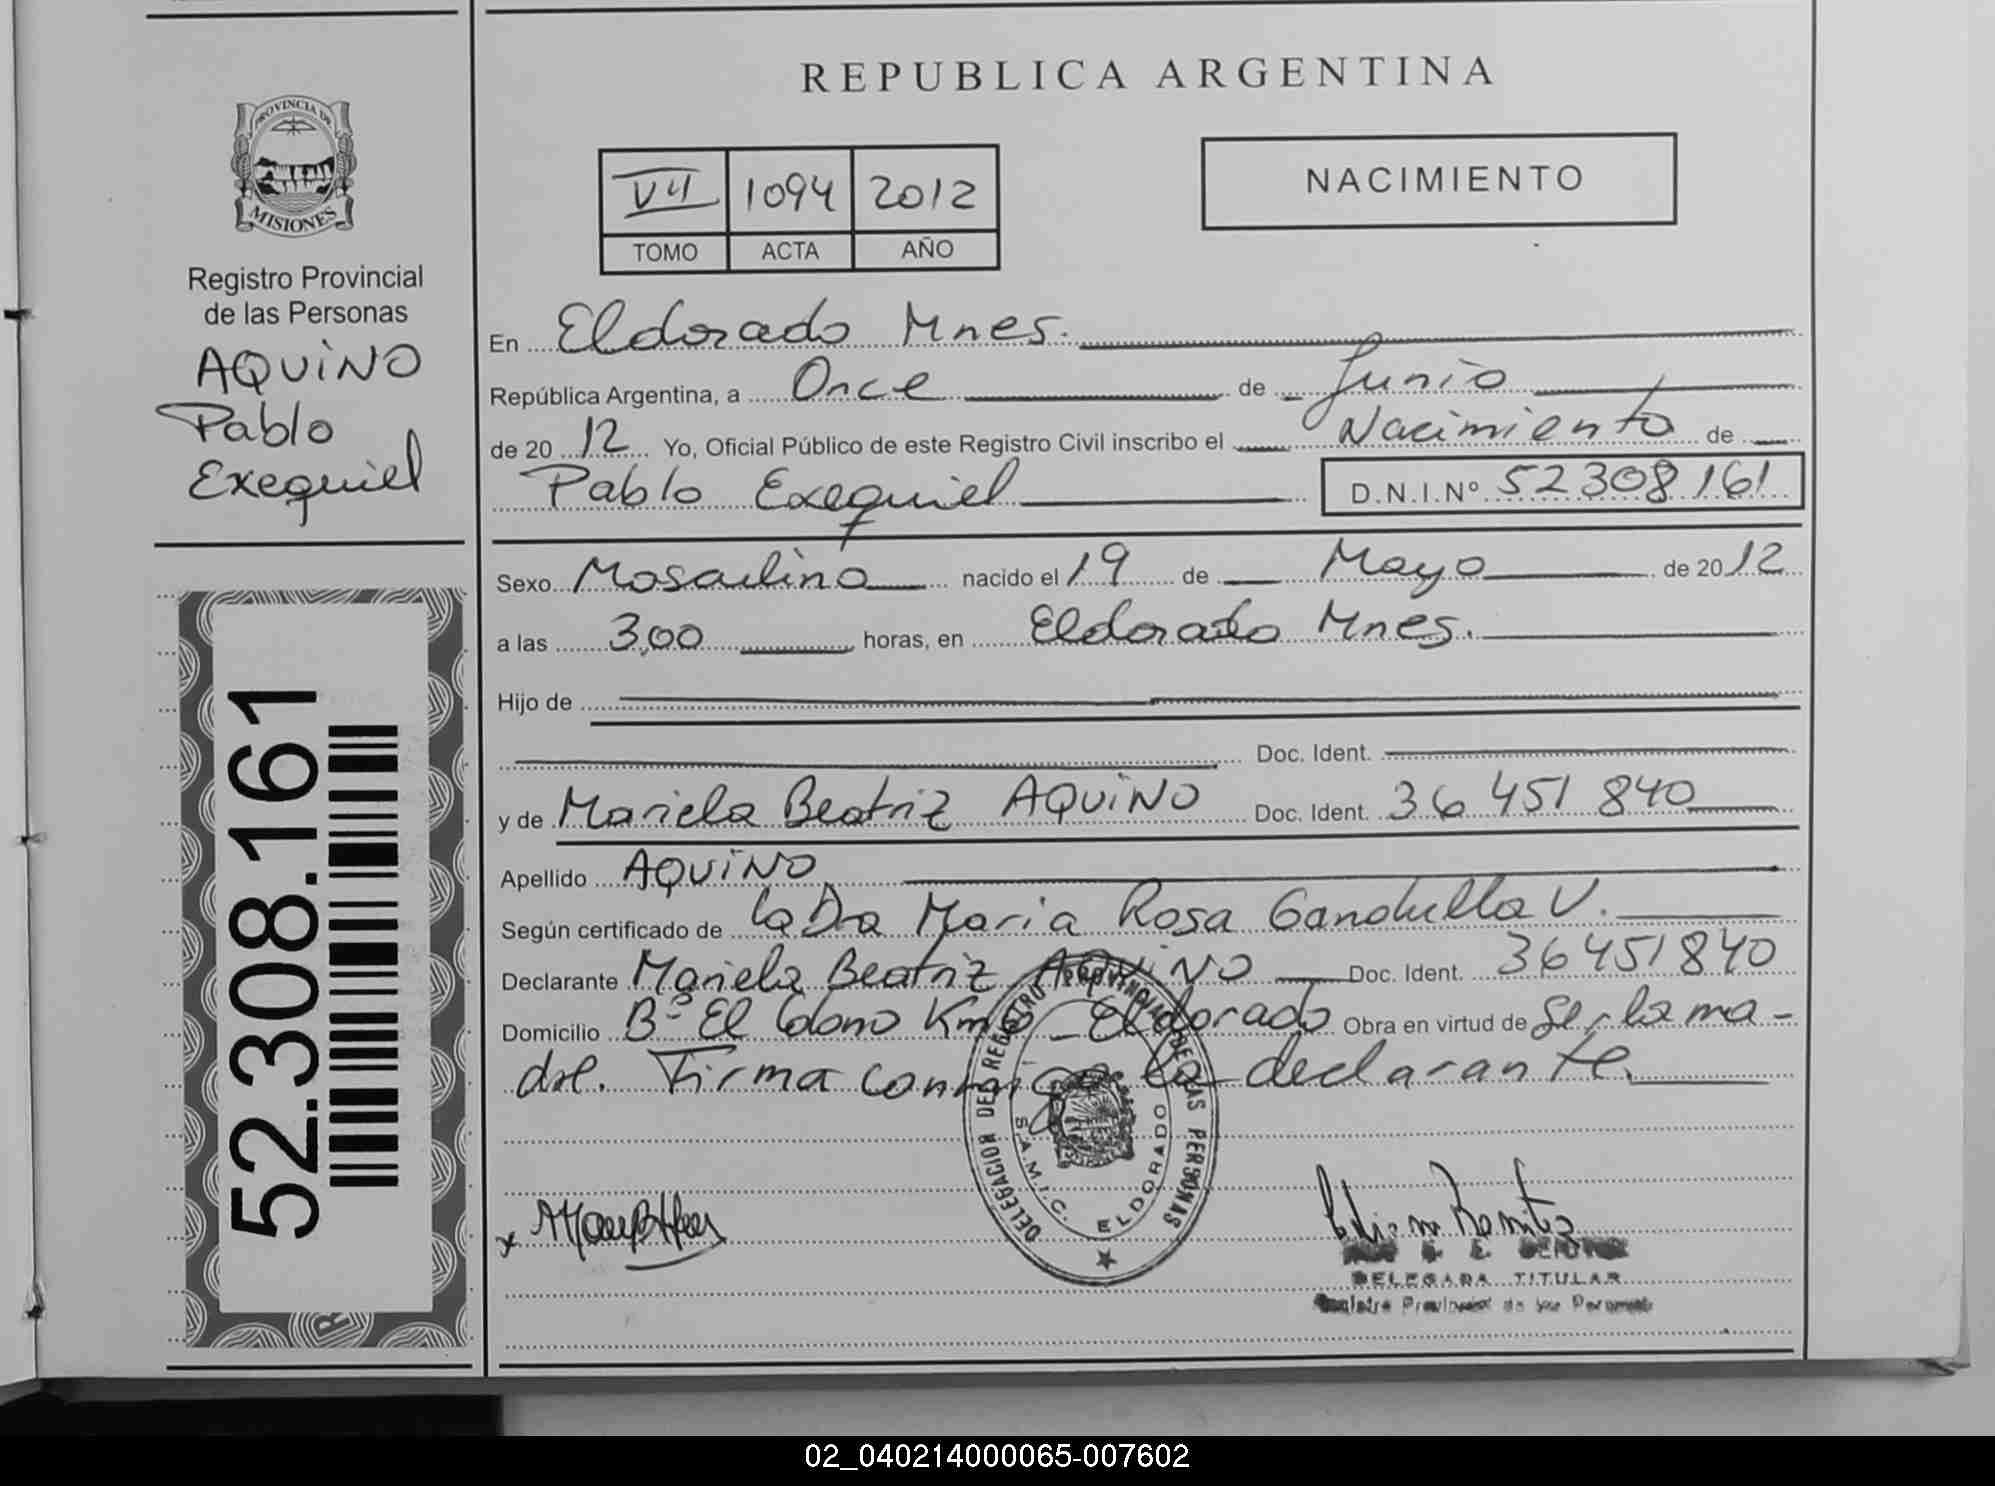 REPUBLICA ARGENTINA
PROVINCIA DE
MISIONES
Registro Provincial
de las Personas
AQUINO
Pablo
Exequiel
52.308.161
VII 1094 2012
TOMO ACTA AÑO
NACIMIENTO
En Eldorado Mnes.
República Argentina, a Once de Junio
de 2012 Yo, Oficial Público de este Registro Civil inscribo el Nacimiento de
Pablo Exequiel D.N.I.Nº 52308161
Sexo Masculino nacido el 19 de Mayo de 2012
a las 3,00 horas, en Eldorado Mnes.
Hijo de
Doc. Ident.
y de Mariela Beatriz AQUINO Doc. Ident. 36 451 840
Apellido AQUINO
Según certificado de la Dra Maria Rosa Gandulla V.
Declarante Mariela Beatriz AQUINO Doc. Ident. 36451840
Domicilio Bº El Colono Km - Eldorado Obra en virtud de Ser la ma-
dre. Firma conmigo la declarante.
DELEGACION DEL REGISTRO PROVINCIAL DE LAS PERSONAS
S.A.M.I.C. ELDORADO
DELEGADA TITULAR
Registro Provincial de las Personas
02_040214000065-007602